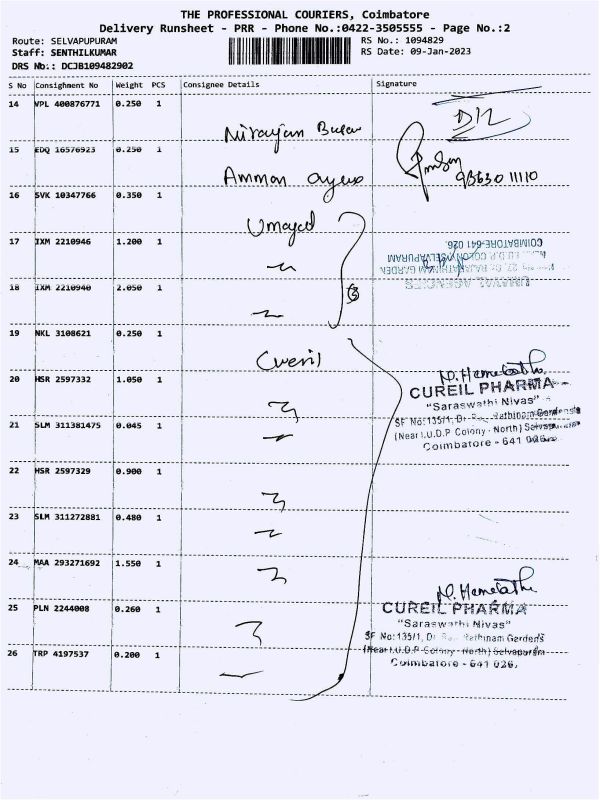 THE PROFESSIONAL COURIERS, Coimbatore
Delivery Runsheet - PRR - Phone No.:0422-3505555 - Page No.:2
Route: SELVAPUPURAM
RS No.: 1094829
Staff: SENTHILKUMAR
RS Date: 09-Jan-2023
DRS No.: DCJB109482902
S No Consignment No Weight PCS Consignee Details Signature
14 VPL 400876771 0.250 1
Nirayjan
15 EDQ 16576923 0.250 1
Amman
98630 11110
16 SVK 10347766 0.350 1
Umayal
17 IXM 2210946 1.200 1
UMAYAL AGENCIES
COIMBATORE-641 026.
18 IXM 2210940 2.050 1
3
19 NKL 3108621 0.250 1
Cureil
20 HSR 2597332 1.050 1
N. Hemalatha
CUREIL PHARMA
"Saraswathi Nivas"
SF No:135/1, Dr. Rathinam Gardens
(Near I.U.D.P Colony - North) Selvapuram
Coimbatore - 641 026.
21 SLM 311381475 0.045 1
22 HSR 2597329 0.900 1
23 SLM 311272881 0.480 1
24 MAA 293271692 1.550 1
25 PLN 2244008 0.260 1
N. Hemalatha
CUREIL PHARMA
"Saraswathi Nivas"
SF No:135/1, Dr. Rathinam Gardens
(Near I.U.D.P Colony - North) Selvapuram
Coimbatore - 641 026.
26 TRP 4197537 0.200 1